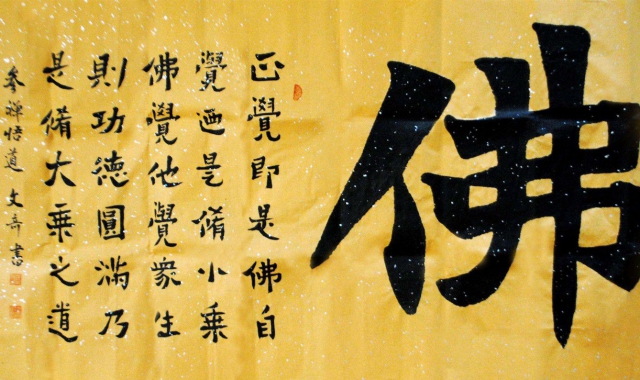 佛
正覺即是佛自
覺迺是脩小乗
佛覺他覺衆生
則功德圓滿乃
是脩大乗之道
参禪悟道 文奇書